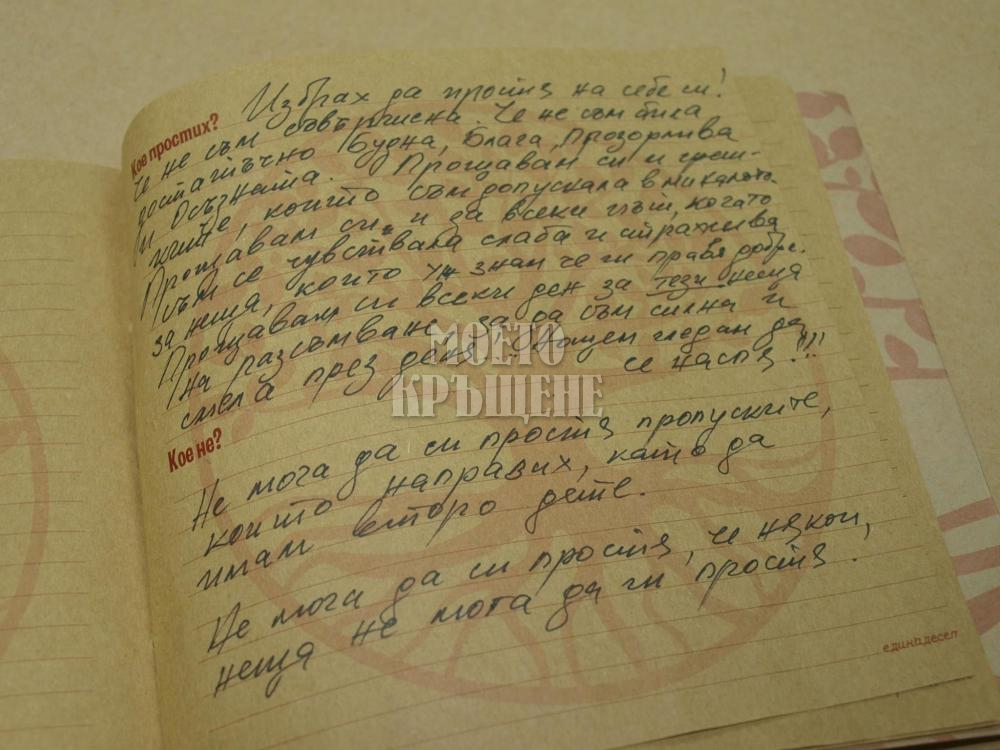 Кое простих?
Избрах да простя на себе си!
Че не съм съвършена. Че не съм била
достатъчно будна, блага, прозорлива
и осъзната. Прощавам си и греш-
ките, които съм допускала в миналото.
Прощавам си и да всеки път, когато
съм се чувствала слаба и страхлива
за неща, които уж знам че ги правя добре.
Прощавам си всеки ден за тези неща
на разсъмване, за да съм силна и
смела през деня! Нощем гледам да
се наспя!!!
Кое не?
Не мога да си простя пропуските,
които направих, като да
имам второ дете.
Не мога да си простя, че някои,
неща не мога да ги простя.
единадесет
МОЕТО
КРЪЩЕНЕ